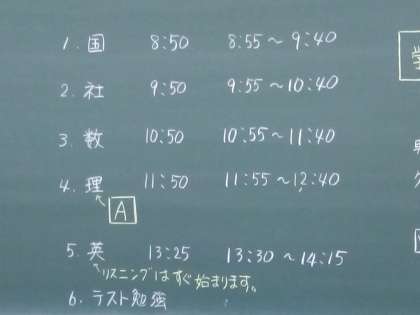 1. 国 8:50 8:55～9:40
2. 社 9:50 9:55～10:40
3. 数 10:50 10:55～11:40
4. 理 11:50 11:55～12:40
A
5. 英 13:25 13:30～14:15
リスニングはすぐ始まります。
6. テスト勉強